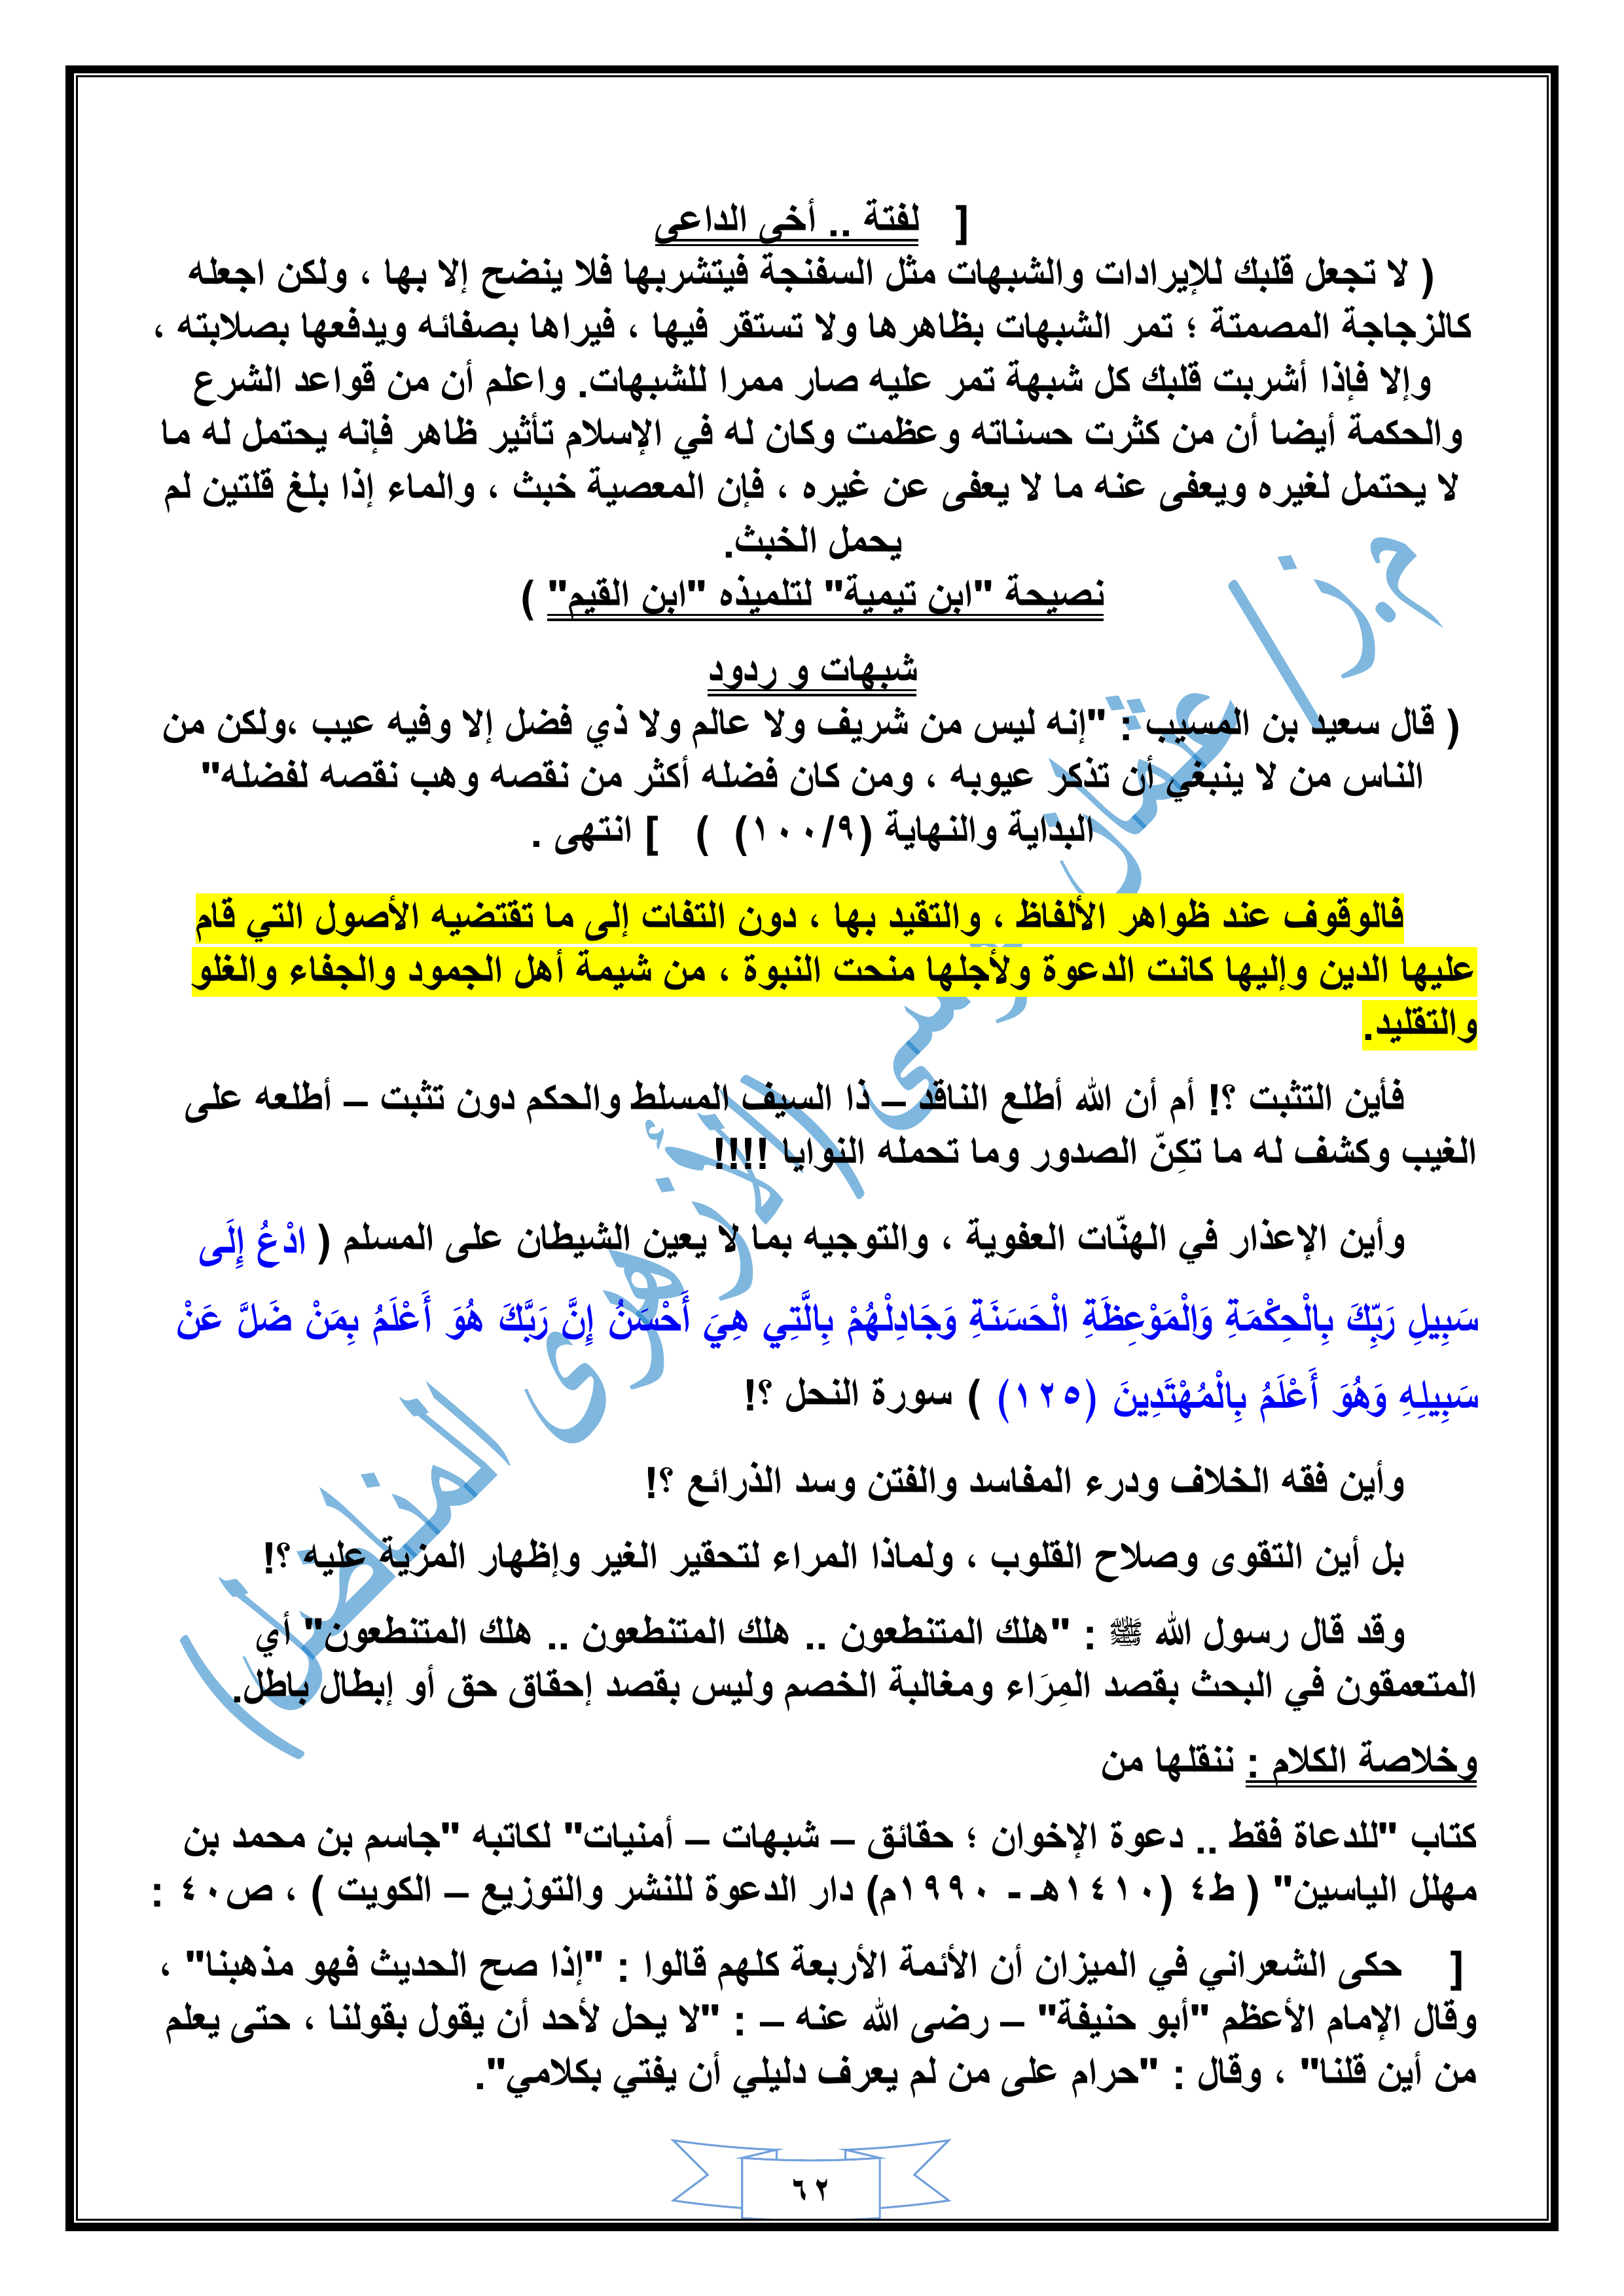 [   لفتة .. أخى الداعى
( لا تجعل قلبك للإيرادات والشبهات مثل السفنجة فيتشربها فلا ينضح إلا بها ، ولكن اجعله
كالزجاجة المصمتة ؛ تمر الشبهات بظاهرها ولا تستقر فيها ، فيراها بصفائه ويدفعها بصلابته ،
وإلا فإذا أشربت قلبك كل شبهة تمر عليه صار ممرا للشبهات. واعلم أن من قواعد الشرع
والحكمة أيضا أن من كثرت حسناته وعظمت وكان له في الإسلام تأثير ظاهر فإنه يحتمل له ما
لا يحتمل لغيره ويعفى عنه ما لا يعفى عن غيره ، فإن المعصية خبث ، والماء إذا بلغ قلتين لم
يحمل الخبث.
نصيحة "ابن تيمية" لتلميذه "ابن القيم" )
شبهات و ردود
( قال سعيد بن المسيب : "إنه ليس من شريف ولا عالم ولا ذي فضل إلا وفيه عيب ،ولكن من
الناس من لا ينبغي أن تذكر عيوبه ، ومن كان فضله أكثر من نقصه وهب نقصه لفضله"
البداية والنهاية (٩/١٠٠) )   ] انتهى .
فالوقوف عند ظواهر الألفاظ ، والتقيد بها ، دون التفات إلى ما تقتضيه الأصول التي قام
عليها الدين وإليها كانت الدعوة ولأجلها منحت النبوة ، من شيمة أهل الجمود والجفاء والغلو
والتقليد.
فأين التثبت ؟! أم أن الله أطلع الناقد – ذا السيف المسلط والحكم دون تثبت – أطلعه على
الغيب وكشف له ما تكِنّ الصدور وما تحمله النوايا !!!!
وأين الإعذار في الهنّات العفوية ، والتوجيه بما لا يعين الشيطان على المسلم ( ادْعُ إِلَى
سَبِيلِ رَبِّكَ بِالْحِكْمَةِ وَالْمَوْعِظَةِ الْحَسَنَةِ وَجَادِلْهُمْ بِالَّتِي هِيَ أَحْسَنُ إِنَّ رَبَّكَ هُوَ أَعْلَمُ بِمَنْ ضَلَّ عَنْ
سَبِيلِهِ وَهُوَ أَعْلَمُ بِالْمُهْتَدِينَ (١٢٥) ) سورة النحل ؟!
وأين فقه الخلاف ودرء المفاسد والفتن وسد الذرائع ؟!
بل أين التقوى وصلاح القلوب ، ولماذا المراء لتحقير الغير وإظهار المزية عليه ؟!
وقد قال رسول الله ﷺ : "هلك المتنطعون .. هلك المتنطعون .. هلك المتنطعون" أي
المتعمقون في البحث بقصد المِرَاء ومغالبة الخصم وليس بقصد إحقاق حق أو إبطال باطل.
وخلاصة الكلام : ننقلها من
كتاب "للدعاة فقط .. دعوة الإخوان ؛ حقائق – شبهات – أمنيات" لكاتبه "جاسم بن محمد بن
مهلل الياسين" ( ط٤ (١٤١٠هـ - ١٩٩٠م) دار الدعوة للنشر والتوزيع – الكويت ) ، ص٤٠ :
[   حكى الشعراني في الميزان أن الأئمة الأربعة كلهم قالوا : "إذا صح الحديث فهو مذهبنا" ،
وقال الإمام الأعظم "أبو حنيفة" – رضى الله عنه – : "لا يحل لأحد أن يقول بقولنا ، حتى يعلم
من أين قلنا" ، وقال : "حرام على من لم يعرف دليلي أن يفتي بكلامي".
٦٢